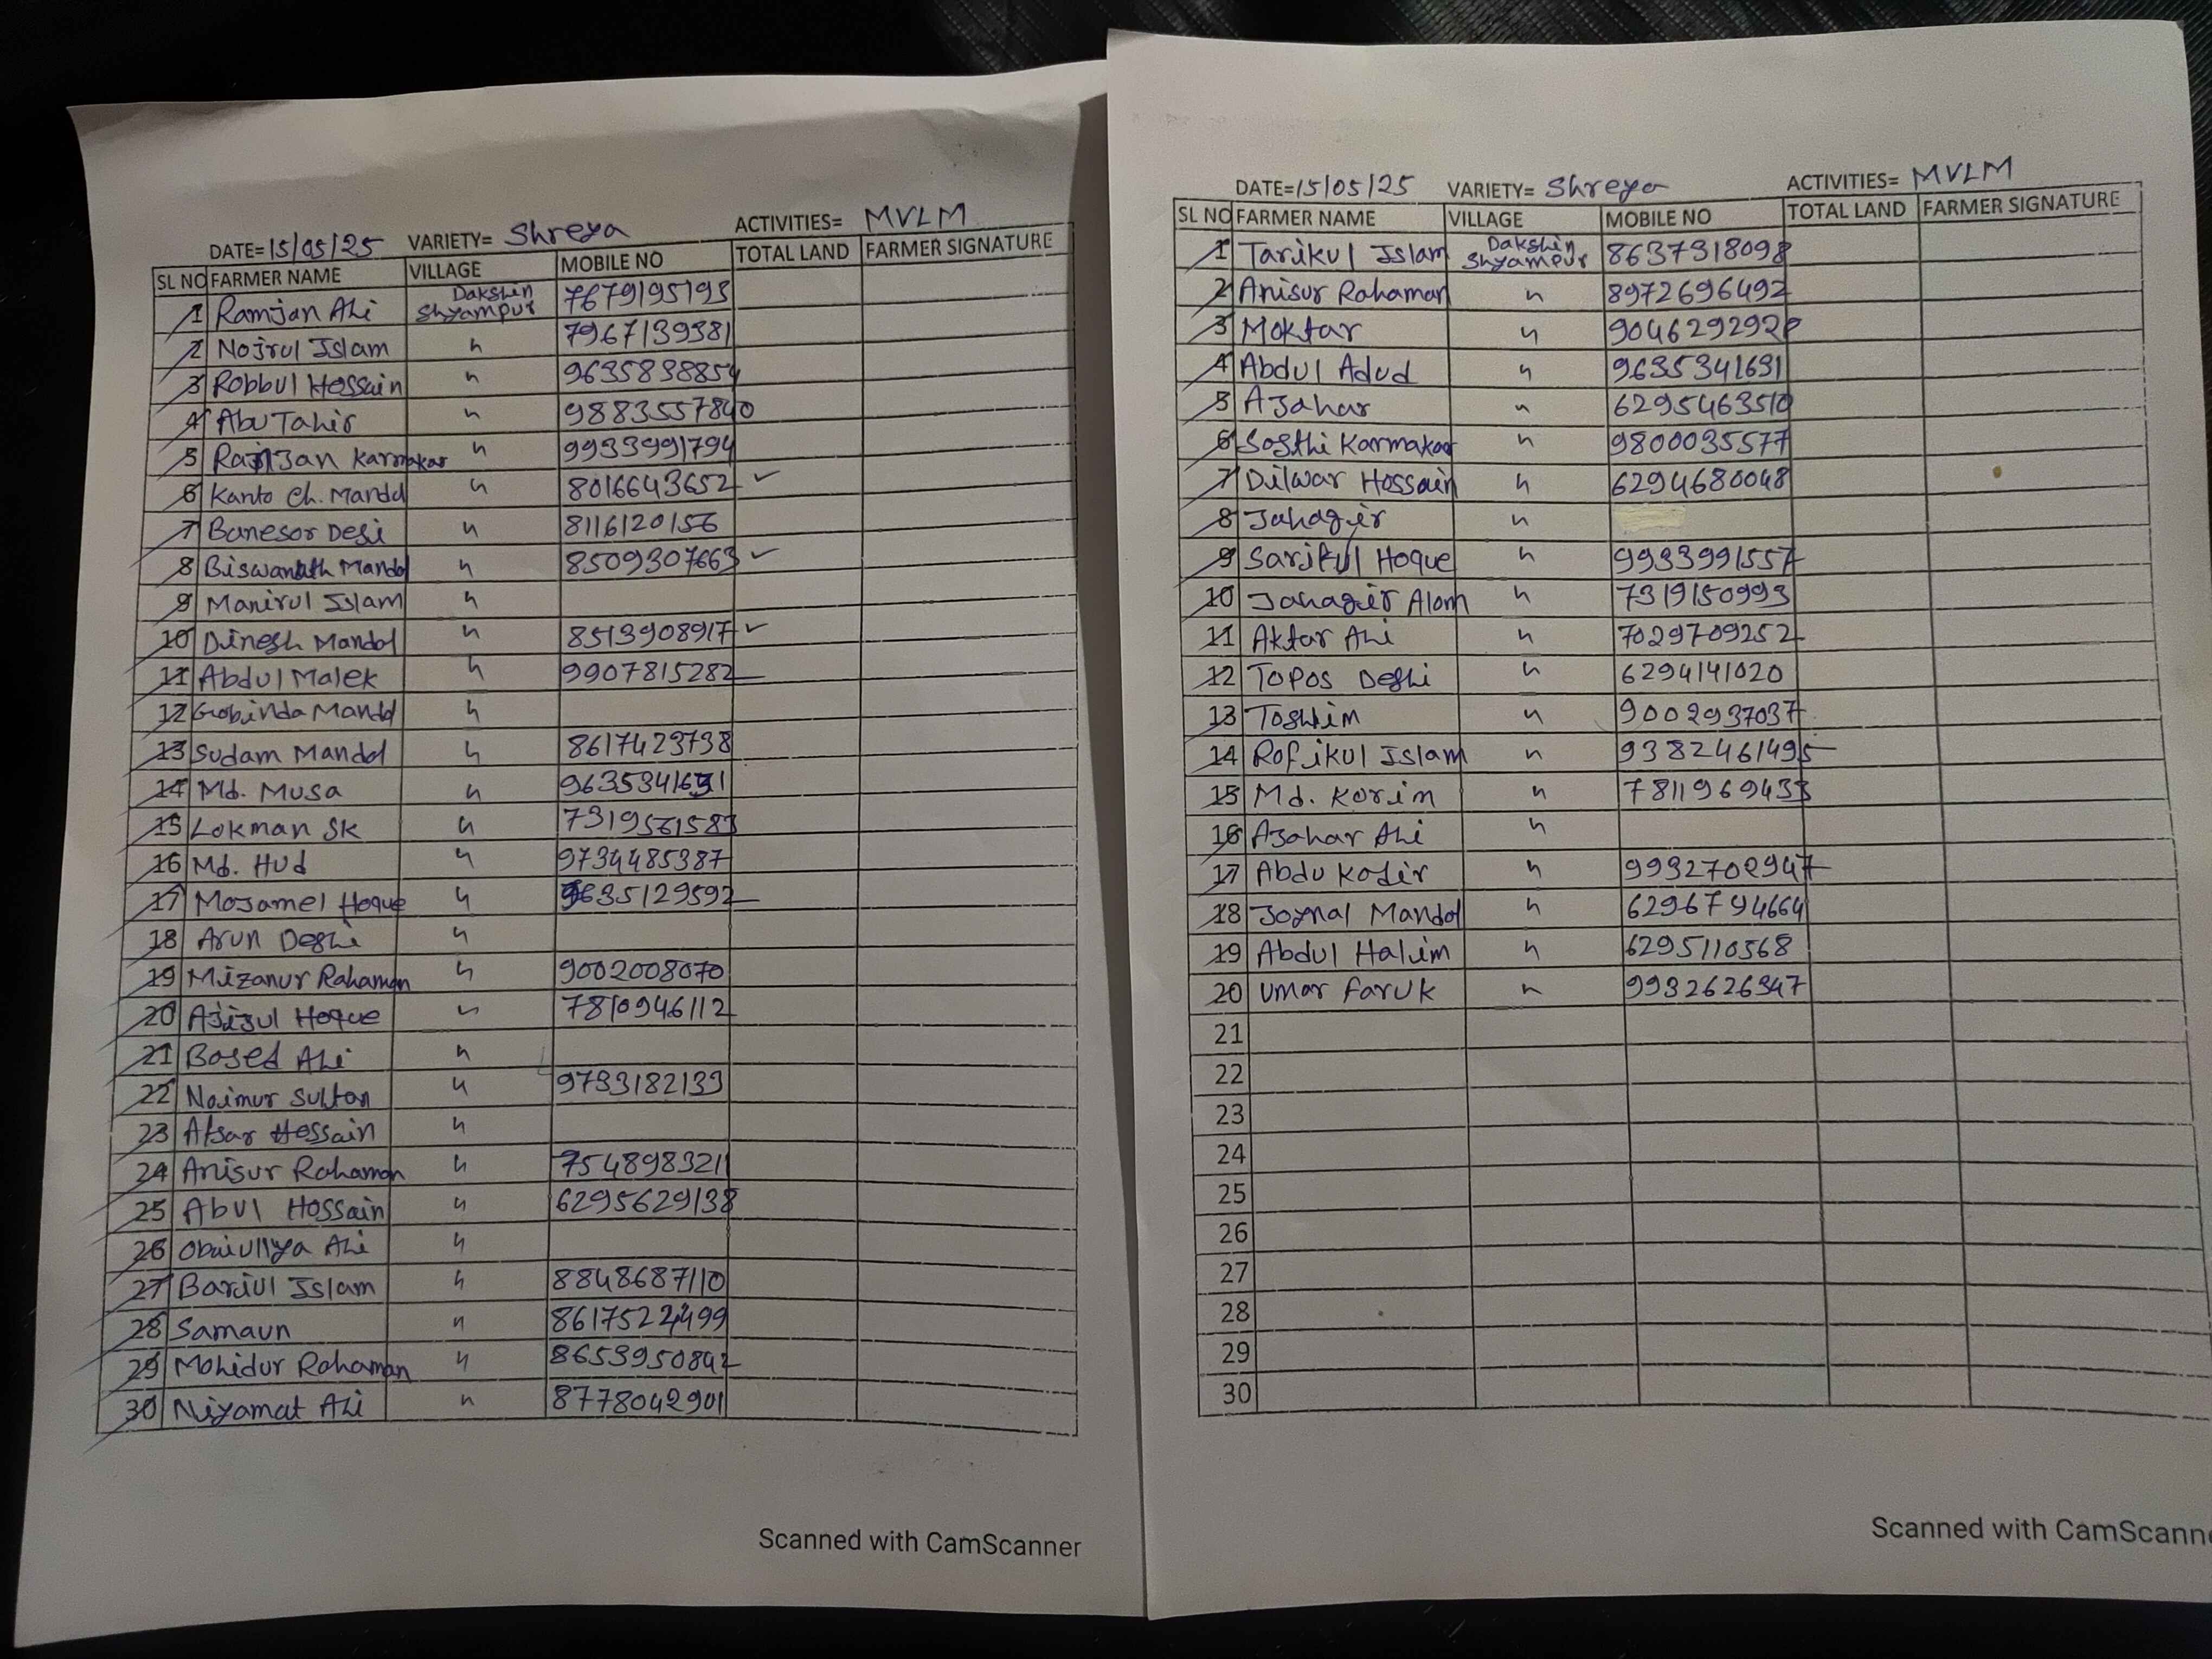 DATE=15/05/25 VARIETY= Shreya ACTIVITIES= MVLM
SL NO FARMER NAME VILLAGE MOBILE NO TOTAL LAND FARMER SIGNATURE
1 Ramjan Ali Dakshin Shyampur 7679195193
2 Nojrul Islam " 7967139381
3 Robbul Hossain " 9635838854
4 Abu Tahir " 9883557840
5 Ranjan Karmakar " 9933991794
6 Kanto Ch. Mandol " 8016643652 ✓
7 Banesor Desi " 8116120156
8 Biswanath Mandol " 8509307663 ✓
9 Manirul Islam "
10 Dinesh Mandol " 8513908917 ✓
11 Abdul Malek " 9907815282
12 Gobinda Mandol "
13 Sudam Mandol " 8617423738
14 Md. Musa " 9635341631
15 Lokman Sk " 7319561583
16 Md. Hud " 9734485387
17 Mojamel Hoque " 9635129592
18 Arun Deshi "
19 Mizanur Rahaman " 9002008070
20 Ajijul Hoque " 7810946112
21 Bosed Ali "
22 Naimur Sultan " 9733182133
23 Afsar Hossain "
24 Anisur Rahaman " 7548983211
25 Abul Hossain " 6295629138
26 Obaiullya Ali "
27 Bariul Islam " 8848687110
28 Samaun " 8617522499
29 Mohidur Rahaman " 8653950842
30 Niyamat Ali " 8778042901
Scanned with CamScanner
DATE=15/05/25 VARIETY= Shreya ACTIVITIES= MVLM
SL NO FARMER NAME VILLAGE MOBILE NO TOTAL LAND FARMER SIGNATURE
1 Tarikul Islam Dakshin Shyampur 8637318098
2 Anisur Rahaman " 8972696492
3 Moktar " 9046292920
4 Abdul Adud " 9635341631
5 AJahar " 6295463510
6 Sosthi Karmakar " 9800035577
7 Dilwar Hossain " 6294680048
8 Jahagir "
9 Sarikul Hoque " 9933991557
10 Jahagir Alom " 7319150993
11 Aktar Ali " 7029709252
12 Topos Deshi " 6294141020
13 Toslim " 9002937037
14 Rofikul Islam " 9382461495
15 Md. Korim " 7811969433
16 AJahar Ali "
17 Abdu Kadir " 9932702947
18 Joynal Mandol " 6296794664
19 Abdul Halim " 6295110568
20 Umar Faruk " 9932626347
21
22
23
24
25
26
27
28
29
30
Scanned with CamScanne